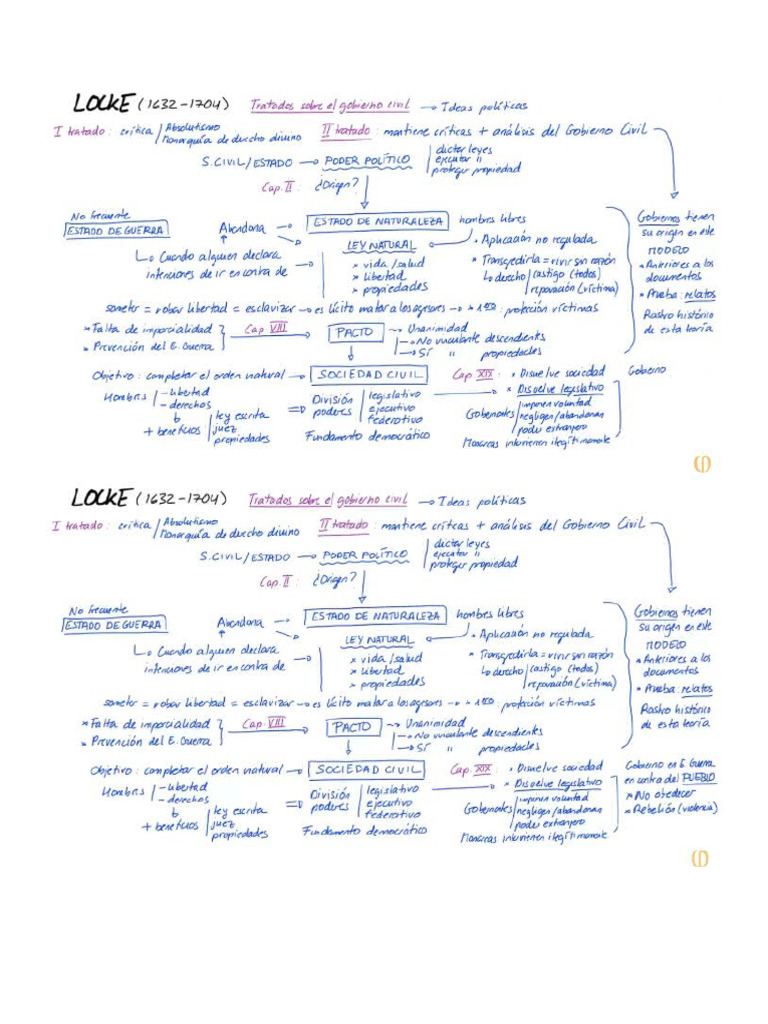 LOCKE (1632-1704) Tratados sobre el gobierno civil → Ideas políticas
I tratado: crítica / Absolutismo
Monarquía de derecho divino
II tratado: mantiene críticas + análisis del Gobierno Civil
S. CIVIL/ESTADO → PODER POLÍTICO
dictar leyes
ejecutar "
proteger propiedad
Cap. II: ¿Origen?
No frecuente
ESTADO DE GUERRA
Abandona → ESTADO DE NATURALEZA hombres libres
LEY NATURAL
* vida/salud
* libertad
* propiedades
Cuando alguien declara
intenciones de ir en contra de
* Aplicación no regulada
* Transgredirla = vivir sin razón
derecho / castigo (todos)
reparación (víctima)
Gobiernos tienen
su origen en este
MODELO
* Anteriores a los
documentos
* Prueba: relatos
Rastro histórico
de esta teoría
someter = robar libertad = esclavizar → es lícito matar a los agresores → protección víctimas
* Falta de imparcialidad
* Prevención del E. Guerra
Cap. VIII → PACTO
Unanimidad
No vinculante descendientes
Sí " propiedades
Objetivo: completar el orden natural → SOCIEDAD CIVIL
Hombres - libertad
- derechos
+ beneficios
ley escrita
juez
propiedades
⇒ División
poderes
legislativo
ejecutivo
federativo
Fundamento democrático
Cap. XIX: * Disuelve sociedad
* Disuelve legislativo
Gobernantes
imponen voluntad
negligen/abandonan
poder extranjero
Monarcas intervienen ilegítimamente
Gobierno
LOCKE (1632-1704) Tratados sobre el gobierno civil → Ideas políticas
I tratado: crítica / Absolutismo
Monarquía de derecho divino
II tratado: mantiene críticas + análisis del Gobierno Civil
S. CIVIL/ESTADO → PODER POLÍTICO
dictar leyes
ejecutar "
proteger propiedad
Cap. II: ¿Origen?
No frecuente
ESTADO DE GUERRA
Abandona → ESTADO DE NATURALEZA hombres libres
LEY NATURAL
* vida/salud
* libertad
* propiedades
Cuando alguien declara
intenciones de ir en contra de
* Aplicación no regulada
* Transgredirla = vivir sin razón
derecho / castigo (todos)
reparación (víctima)
Gobiernos tienen
su origen en este
MODELO
* Anteriores a los
documentos
* Prueba: relatos
Rastro histórico
de esta teoría
someter = robar libertad = esclavizar → es lícito matar a los agresores → protección víctimas
* Falta de imparcialidad
* Prevención del E. Guerra
Cap. VIII → PACTO
Unanimidad
No vinculante descendientes
Sí " propiedades
Objetivo: completar el orden natural → SOCIEDAD CIVIL
Hombres - libertad
- derechos
+ beneficios
ley escrita
juez
propiedades
⇒ División
poderes
legislativo
ejecutivo
federativo
Fundamento democrático
Cap. XIX: * Disuelve sociedad
* Disuelve legislativo
Gobernantes
imponen voluntad
negligen/abandonan
poder extranjero
Monarcas intervienen ilegítimamente
Gobierno en E Guerra
en contra del PUEBLO
* No obedecer
* Rebelión (violencia)